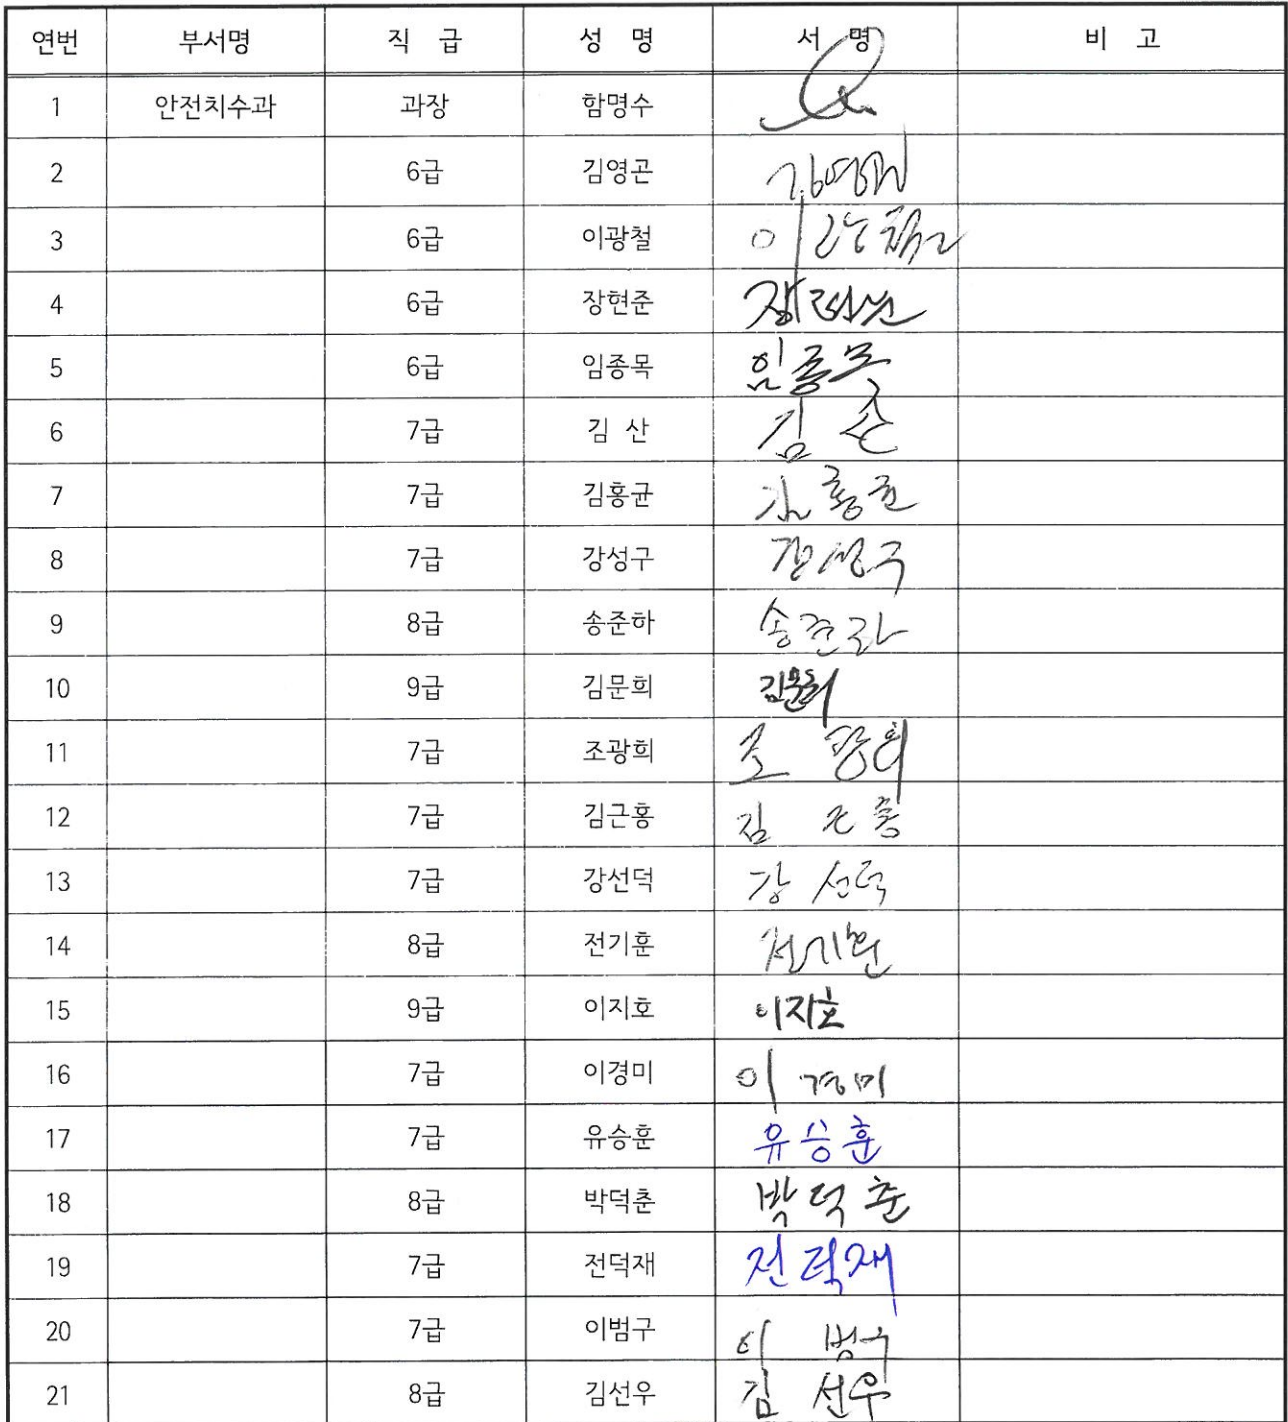 연번 부서명 직 급 성 명 서 명 비 고
1 안전치수과 과장 함명수
2 6급 김영곤 김영곤
3 6급 이광철 이광철
4 6급 장현준 장현준
5 6급 임종목 임종목
6 7급 김 산 김 산
7 7급 김홍균 김홍균
8 7급 강성구 강성구
9 8급 송준하 송준하
10 9급 김문희 김문희
11 7급 조광희 조 광희
12 7급 김근홍 김 근홍
13 7급 강선덕 강 선덕
14 8급 전기훈 전기훈
15 9급 이지호 이지호
16 7급 이경미 이 경미
17 7급 유승훈 유승훈
18 8급 박덕춘 박덕춘
19 7급 전덕재 전덕재
20 7급 이범구 이 범구
21 8급 김선우 김 선우